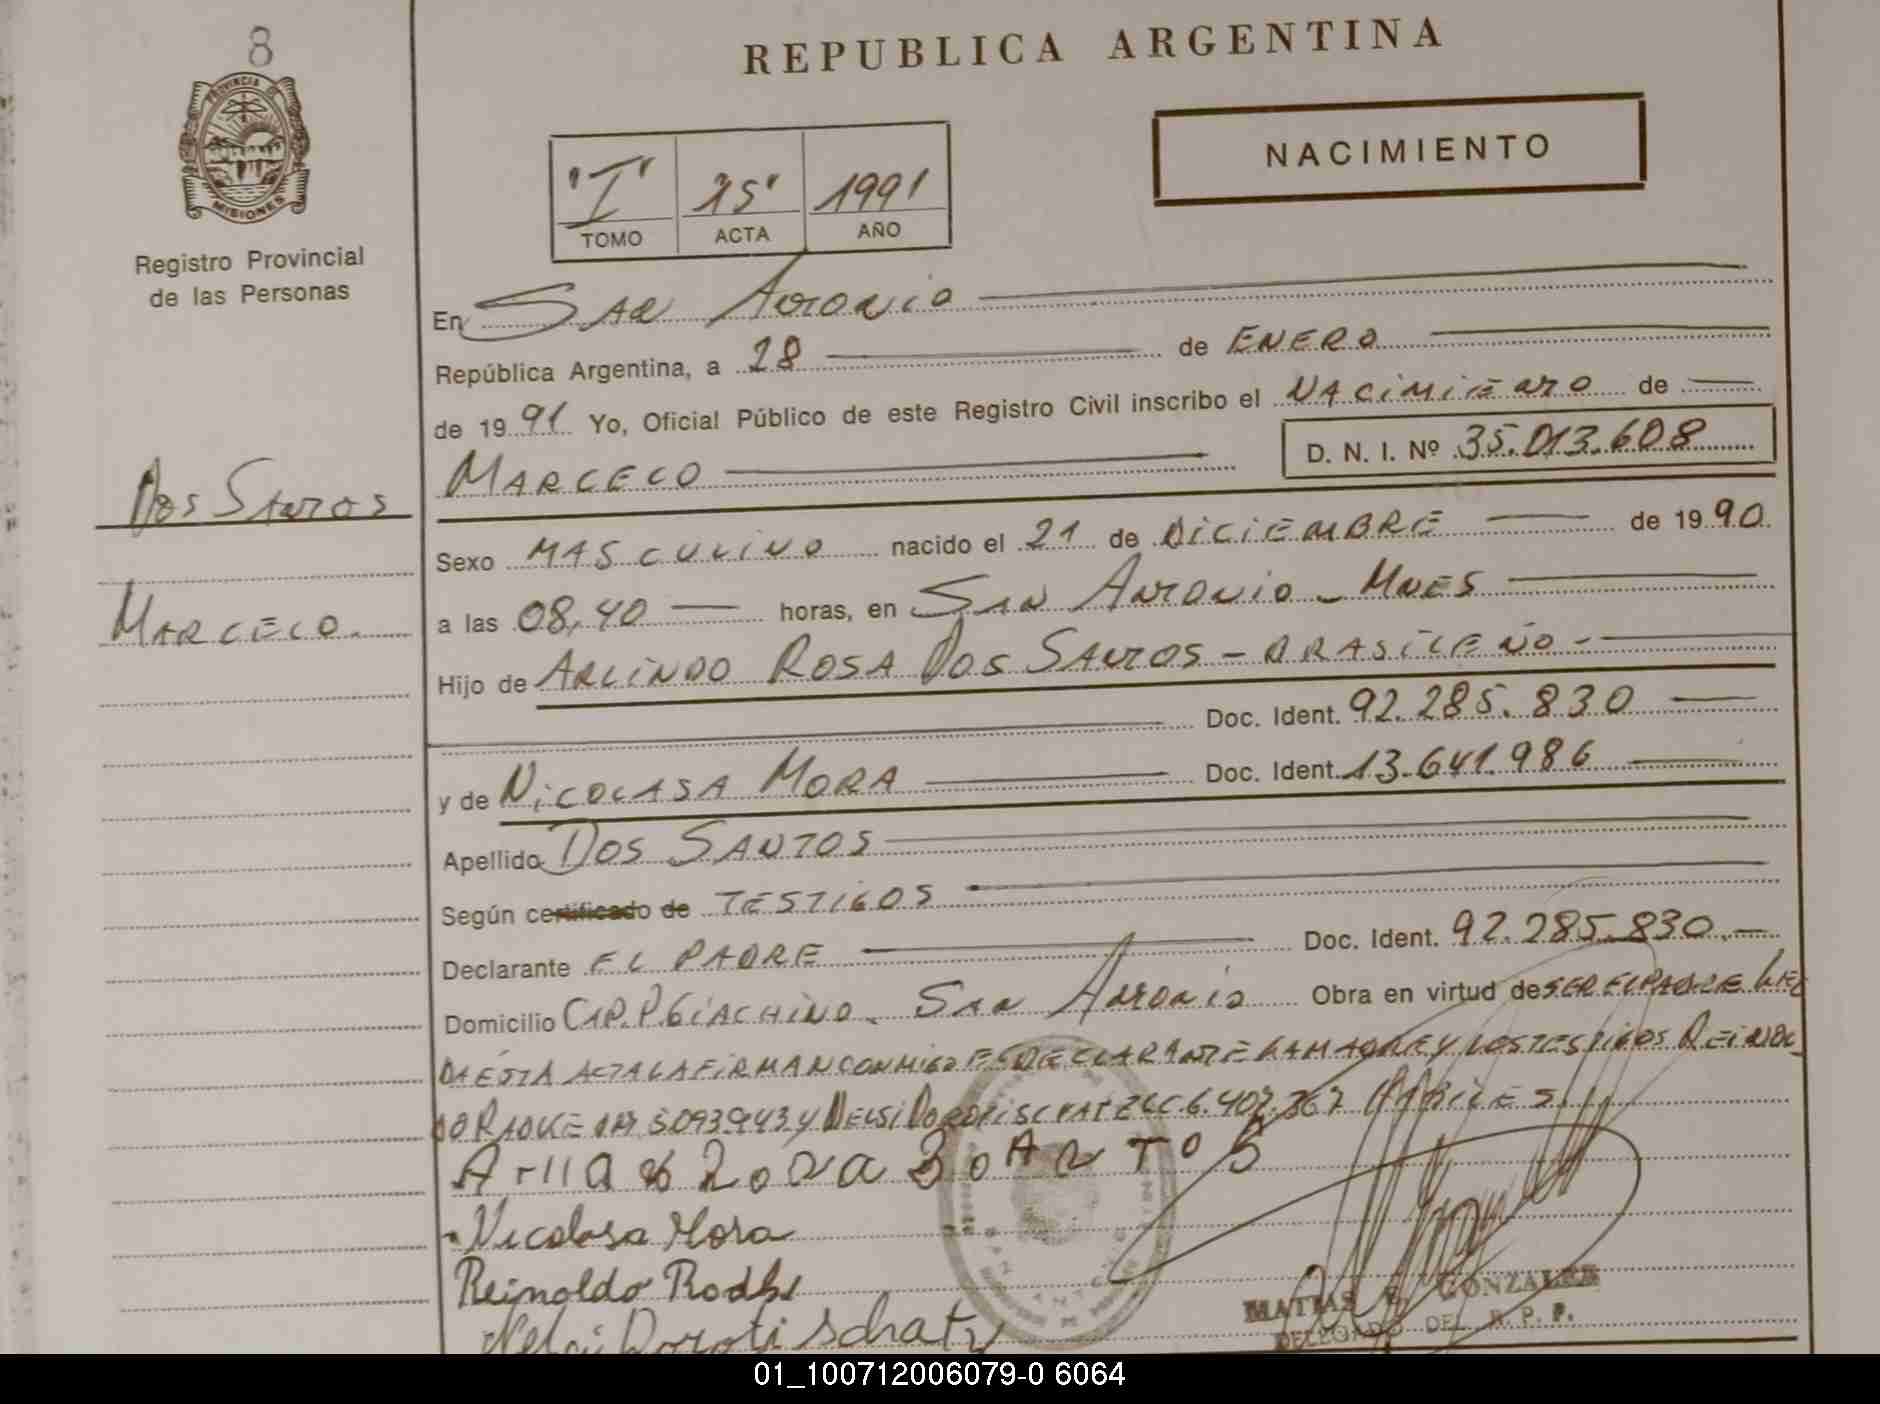 8
REPUBLICA ARGENTINA
PROVINCIA DE
MISIONES
Registro Provincial
de las Personas
NACIMIENTO
"I" 15' 1991
TOMO ACTA AÑO
En San Antonio
República Argentina, a 28 de ENERO
de 1991 Yo, Oficial Público de este Registro Civil inscribo el NACIMIENTO de
MARCELO D. N. I. Nº 35.013.608
Dos Santos
Marcelo.
Sexo MASCULINO nacido el 21 de DICIEMBRE de 1990.
a las 08,40 horas, en San Antonio - Mnes
Hijo de ARLINDO ROSA DOS SANTOS - BRASILEÑO -
Doc. Ident. 92.285.830
y de NICOLASA MORA Doc. Ident. 13.641.986
Apellido DOS SANTOS
Según certificado de TESTIGOS
Declarante EL PADRE Doc. Ident. 92.285.830.-
Domicilio CAP. P. GIACHINO. San Antonio Obra en virtud de SER EL PADRE
DA ESTA ACTA LA FIRMAN CONMIGO EL DECLARANTE LA MADRE Y LOS TESTIGOS REINOL
DO 5093943 Y NELSI DOROTI LC 6.407.767
Nicolasa Mora
Reinoldo
Doroti Schatz
MATIAS GONZALEZ
DELEGADO DEL R. P. P.
01_100712006079-0 6064